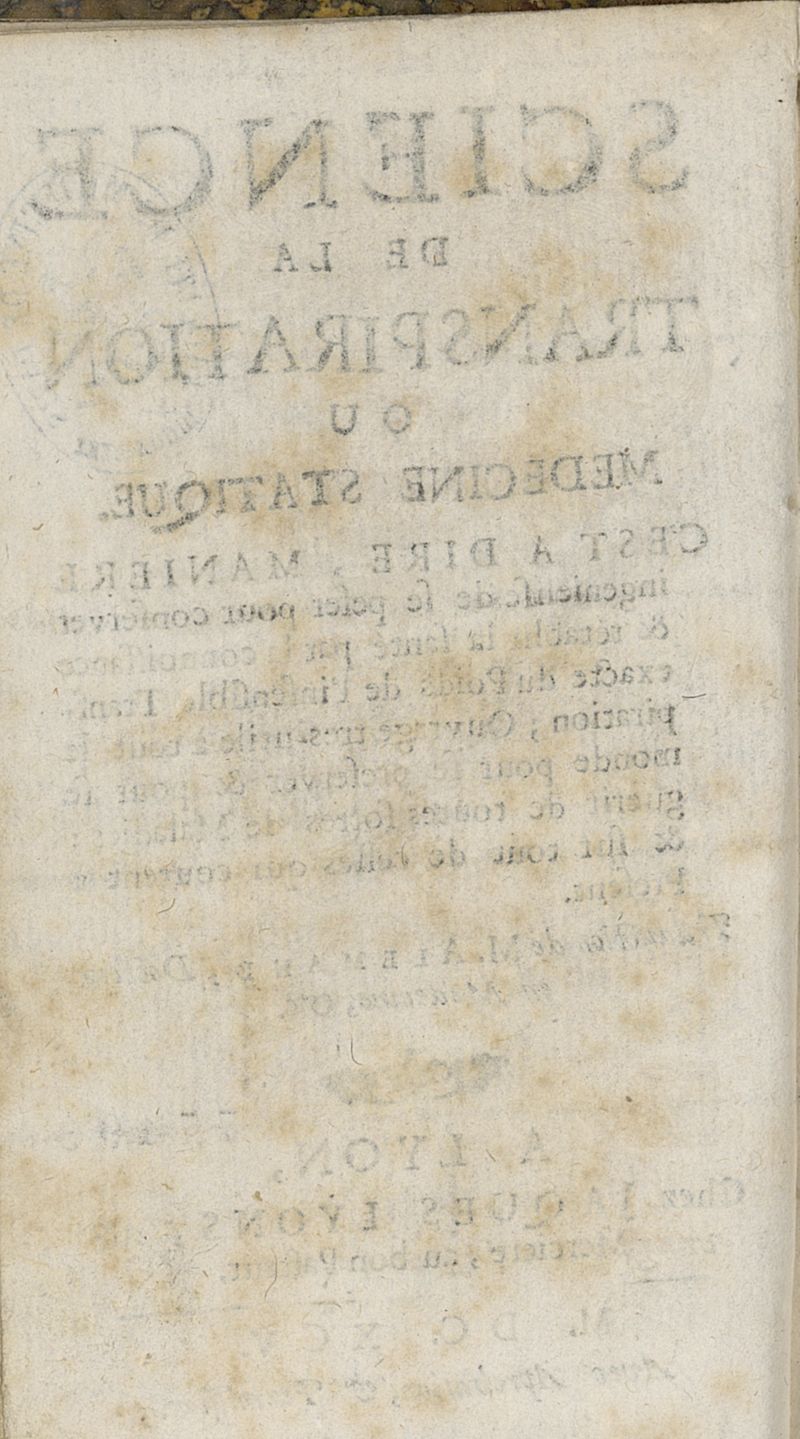 SCIENCE
DE LA
TRANSPIRATION
OU
MEDECINE STATIQUE.
C'EST A DIRE, MANIERE
ingenieuse de se peser pour conserver
& rétablir la santé par la connoissance
exacte du Poids de l'insensible Trans-
piration ; Ouvrage tres-utile à tout le
monde pour se preserver & pour se
guerir de toutes sortes de Maladies
& sur tout de celles qui courent à
Present.
de M. ALEMAND, Docteur
en Medecine, &c.
A LYON,
Chez JAQUES LYONS
Merciere, au bon Pasteur.
M. DC. XCV.